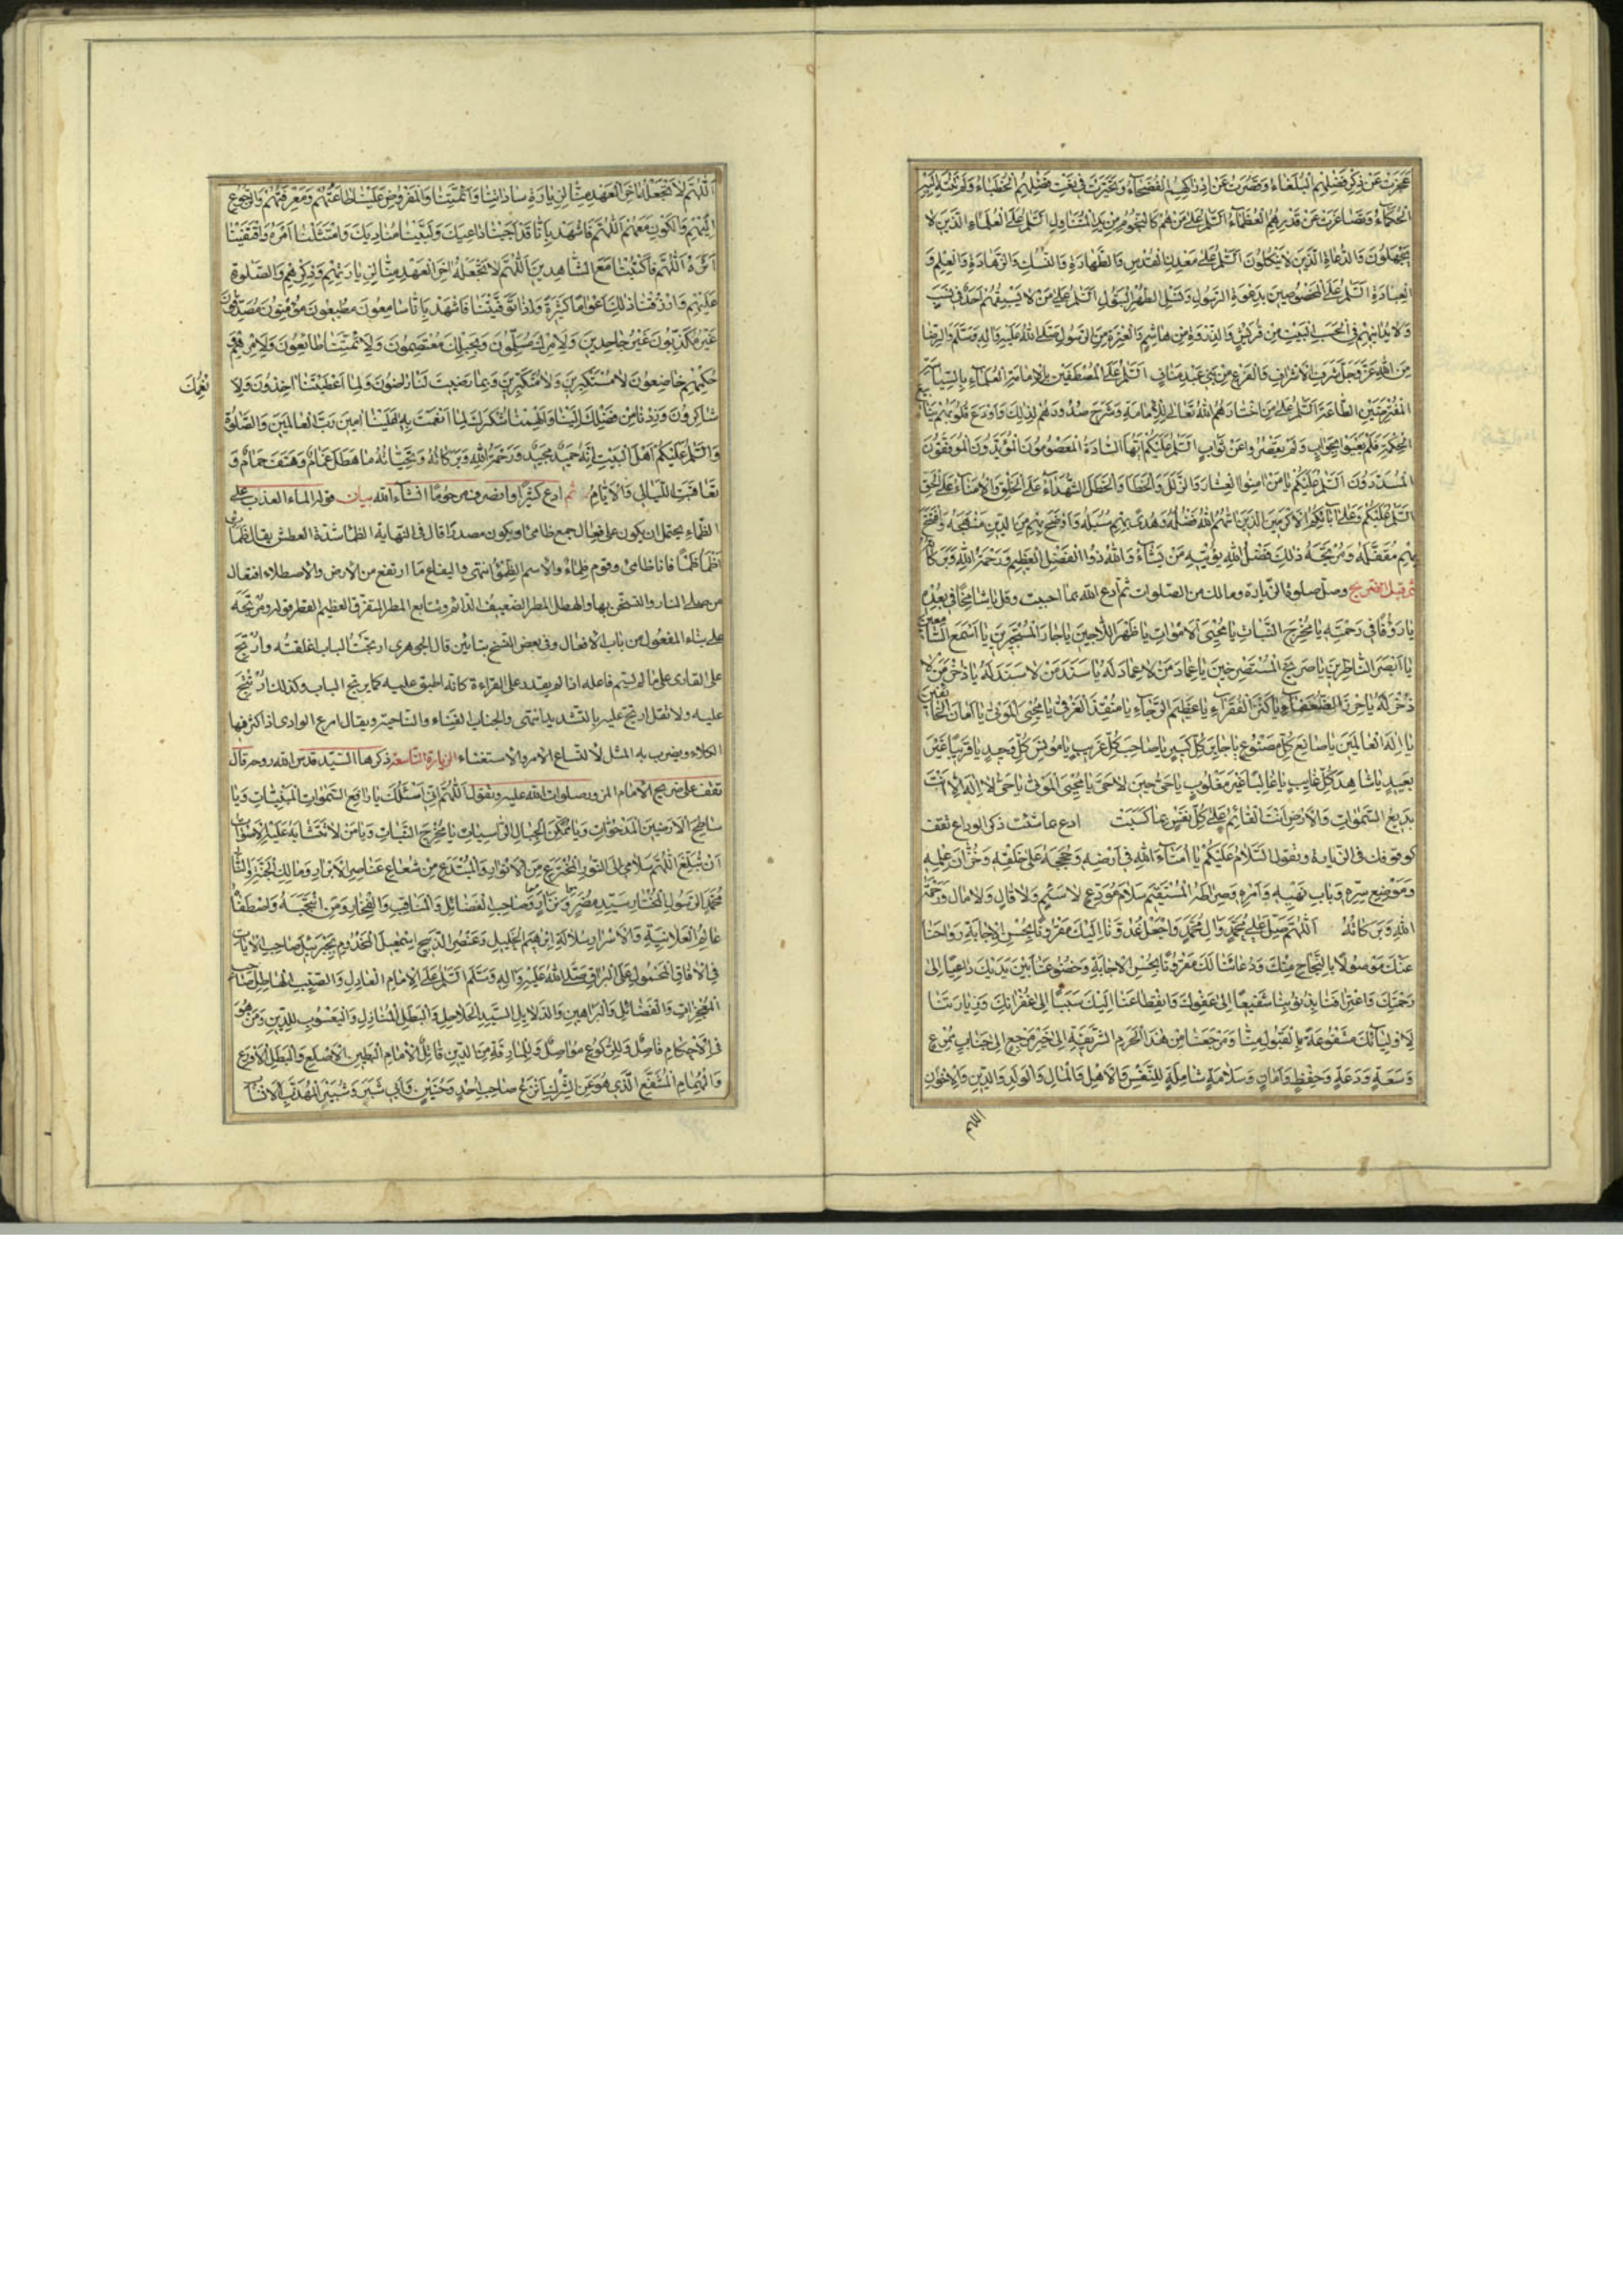 عَجَزَتْ عَنْ ذِكْرِ فَضْلِهِمُ الْبُلَغَاءُ وَقَصُرَتْ عَنْ اِدْرَاكِهِمُ الْفُصَحَاءُ وَتَحَيَّرَتْ فِي نَعْتِ فَضْلِهِمُ الْخُطَبَاءُ
الْحُكَمَاءُ وَتَصَاغَرَتْ عَنْ قَدْرِهِمُ الْعُظَمَاءُ السَّلَمُ عَلَى مَنْ هُمْ كَالنُّجُومِ مِنْ يَدِ الْمُتَنَاوِلِ السَّلَمُ عَلَى الْعُلَمَاءِ الَّذِينَ لَا
يَجْهَلُونَ وَالدُّعَاةِ الَّذِينَ لَا يَنْكُلُونَ السَّلَمُ عَلَى مَعْدِنِ الْقُدْسِ وَالطَّهَارَةِ وَالنُّسُكِ وَالزَّهَادَةِ وَالْعِلْمِ وَ
الْعِبَادَةِ السَّلَمُ عَلَى الْمَخْصُوصِينَ بِدَعْوَةِ الرَّسُولِ وَنَسْلِ الطُّهْرِ الْبَتُولِ السَّلَمُ عَلَى مَنْ لَا يَسْبِقُهُمْ اَحَدٌ فِي نَسَبٍ
وَلَا يُدَانِيهِمْ فِي حَسَبٍ الْبَيْتِ مِنْ قُرَيْشٍ وَالذِّرْوَةِ مِنْ هَاشِمٍ وَالْعِتْرَةِ مِنَ الرَّسُولِ صَلَّى اللهُ عَلَيْهِ وَالِهِ وَسَلَّمَ وَالرِّضَا
مِنَ اللهِ عَزَّ وَجَلَّ شَرَفِ الْاَشْرَافِ وَالْفَرْعِ مِنْ بَنِي عَبْدِ مَنَافٍ السَّلَمُ عَلَى الْمُصْطَفَيْنَ بِالْاِمَامَةِ الْعُلَمَاءِ بِالسِّيَاسَةِ
الْمُفْتَرِضِينَ الطَّاعَةَ السَّلَمُ عَلَى مَنِ اخْتَارَهُمُ اللهُ تَعَالَى لِلْاِمَامَةِ وَشَرَحَ صُدُورَهُمْ لِذَلِكَ وَاَوْدَعَ قُلُوبَهُمْ يَنَابِيعَ
الْحِكْمَةِ فَلَمْ يَعْيَوْا بِجَوَابٍ وَلَمْ يَقْصُرُوا عَنْ ثَوَابٍ السَّلَمُ عَلَيْكُمْ اَيُّهَا السَّادَةُ الْمَعْصُومُونَ الْمُؤَيَّدُونَ الْمُوَفَّقُونَ
الْمُسَدَّدُونَ السَّلَمُ عَلَيْكُمْ يَا مَنْ اَمِنُوا الْعِثَارَ وَالزَّلَلَ وَالْخَطَاءَ وَالْخَطَلَ الشُّهَدَاءَ عَلَى الْخَلْقِ وَالْاُمَنَاءَ عَلَى الْحَقِّ
السَّلَمُ عَلَيْكُمْ وَعَلَى اٰبَائِكُمُ الْاَكْرَمِينَ الَّذِينَ اٰتَاهُمُ اللهُ فَضْلَهُ وَهَدَى بِهِمْ سُبُلَهُ وَاَوْضَحَ بِهِمْ مِنَ الدِّينِ مَنْهَجَهُ وَافْتَتَحَ
بِهِمْ مُقَفَّلَهُ وَمُرْتَجَهُ ذَلِكَ فَضْلُ اللهِ يُؤْتِيهِ مَنْ يَشَاءُ وَاللهُ ذُو الْفَضْلِ الْعَظِيمِ وَرَحْمَةُ اللهِ وَبَرَكَاتُهُ
ثم قبل الضريح وصل صلوة الزيارة وما لك من الصلوات ثم ادع الله بما احببت وقل يَا شَامِخًا فِي بُعْدِهِ
يَا رَؤُفًا فِي رَحْمَتِهِ يَا مُخْرِجَ النَّبَاتِ يَا مُحْيِيَ الْاَمْوَاتِ يَا ظَهْرَ اللَّاجِينَ يَا جَارَ الْمُسْتَجِيرِينَ يَا اَسْمَعَ السَّامِعِينَ
يَا اَبْصَرَ النَّاظِرِينَ يَا صَرِيخَ الْمُسْتَصْرِخِينَ يَا عِمَادَ مَنْ لَا عِمَادَ لَهُ يَا سَنَدَ مَنْ لَا سَنَدَ لَهُ يَا ذُخْرَ مَنْ لَا
ذُخْرَ لَهُ يَا حِرْزَ الضُّعَفَاءِ يَا كَنْزَ الْفُقَرَاءِ يَا عَظِيمَ الرَّجَاءِ يَا مُنْقِذَ الْغَرْقَى يَا مُحْيِيَ الْمَوْتَى يَا اَمَانَ الْخَائِفِينَ
يَا اِلٰهَ الْعَالَمِينَ يَا صَانِعَ كُلِّ مَصْنُوعٍ يَا جَابِرَ كُلِّ كَسِيرٍ يَا صَاحِبَ كُلِّ غَرِيبٍ يَا مُونِسَ كُلِّ وَحِيدٍ يَا قَرِيبًا غَيْرَ
بَعِيدٍ يَا شَاهِدَ كُلِّ غَايِبٍ يَا غَالِبًا غَيْرَ مَغْلُوبٍ يَا حَيُّ حِينَ لَا حَيَّ يَا مُحْيِيَ الْمَوْتَى يَا حَيُّ لَا اِلٰهَ اِلَّا اَنْتَ
بَدِيعُ السَّمٰوَاتِ وَالْاَرْضِ اَنْتَ الْقَائِمُ عَلَى كُلِّ نَفْسٍ بِمَا كَسَبَتْ ادع بما شئت ذكر الوداع تقف
كوقوفك في الزيارة وتقول السَّلَامُ عَلَيْكُمْ يَا اُمَنَاءَ اللهِ فِي اَرْضِهِ وَحُجَجَهُ عَلَى خَلْقِهِ وَخُزَّانَ عِلْمِهِ
وَمَوْضِعَ سِرِّهِ وَبَابَ نَهْيِهِ وَاَمْرِهِ وَصِرَاطَهُ الْمُسْتَقِيمَ سَلَامَ مُوَدِّعٍ لَا سَئِمٍ وَلَا قَالٍ وَلَا مَالٍّ وَرَحْمَةُ
اللهِ وَبَرَكَاتُهُ اَللّٰهُمَّ صَلِّ عَلَى مُحَمَّدٍ وَالِ مُحَمَّدٍ وَاجْعَلْ غُدُوَّنَا اِلَيْكَ مَقْرُونًا بِحُسْنِ الْاِجَابَةِ وَرَوَاحَنَا
عَنْكَ مَوْصُولًا بِالنَّجَاحِ مِنْكَ وَدُعَائَنَا لَكَ مَقْرُونًا بِحُسْنِ الْاِجَابَةِ وَخُضُوعَنَا بَيْنَ يَدَيْكَ دَاعِيًا اِلَى
رَحْمَتِكَ وَاعْتِرَافَنَا بِذُنُوبِنَا شَفِيعًا اِلَى عَفْوِكَ وَانْقِطَاعَنَا اِلَيْكَ سَبَبًا اِلَى غُفْرَانِكَ وَزِيَارَتَنَا
لِاَوْلِيَائِكَ مَشْفُوعَةً بِالْقَبُولِ مِنَّا وَمَرْجَعَنَا مِنْ هٰذَا الْحَرَمِ الشَّرِيفِ اِلَى خَيْرِ مَرْجَعٍ اِلَى جَنَابٍ مُمْرِعٍ
وَسَعَةٍ وَدَعَةٍ وَحِفْظٍ وَاَمَانٍ وَسَلَامَةٍ شَامِلَةٍ لِلنَّفْسِ وَالْاَهْلِ وَالْمَالِ وَالْوَلَدِ وَالدِّينِ وَالْاِخْوَانِ
اللهم
اَللّٰهُمَّ لَا تَجْعَلْهُ اٰخِرَ الْعَهْدِ مِنَّا لِزِيَارَةِ سَادَاتِنَا وَاَئِمَّتِنَا وَالْمَفْرُوضِ عَلَيْنَا طَاعَتُهُمْ وَمَعْرِفَتُهُمْ وَالرُّجُوعِ
اِلَيْهِمْ وَالْكَوْنِ مَعَهُمْ اَللّٰهُمَّ فَاشْهَدْ بِاَنَّا قَدْ اَجَبْنَا دَاعِيَكَ وَلَبَّيْنَا مُنَادِيَكَ وَامْتَثَلْنَا اَمْرَهُ وَاقْتَفَيْنَا
اَثَرَهُ اَللّٰهُمَّ فَاكْتُبْنَا مَعَ الشَّاهِدِينَ اَللّٰهُمَّ لَا تَجْعَلْهُ اٰخِرَ الْعَهْدِ مِنَّا لِزِيَارَتِهِمْ وَذِكْرِهِمْ وَالصَّلٰوةِ
عَلَيْهِمْ وَارْزُقْنَا ذَلِكَ اَعْوَامًا كَثِيرَةً وَاِذَا تَوَفَّيْتَنَا فَاشْهَدْ بِاَنَّا سَامِعُونَ مُطِيعُونَ مُؤْمِنُونَ مُصَدِّقُونَ
غَيْرُ مُكَذِّبُونَ غَيْرُ جَاحِدِينَ وَلِاَمْرِكَ مُسَلِّمُونَ وَبِحَبْلِكَ مُعْتَصِمُونَ وَلِاَئِمَّتِنَا طَائِعُونَ وَلِاَمْرِهِمْ وَ
حُكْمِهِمْ خَاضِعُونَ لَا مُسْتَكْبِرِينَ وَلَا مُتَكَبِّرِينَ وَبِمَا رَضِيتَ لَنَا رَاضُونَ وَلِمَا اَعْطَيْتَنَا اٰخِذُونَ وَلِاَ
نْعُمِكَ
شَاكِرُونَ وَزِدْنَا مِنْ فَضْلِكَ وَاَلْهِمْنَا شُكْرَكَ لِمَا اَنْعَمْتَ بِهِ عَلَيْنَا اٰمِينَ رَبَّ الْعَالَمِينَ وَالصَّلٰوةُ
وَالسَّلَمُ عَلَيْكُمْ اَهْلَ الْبَيْتِ اِنَّهُ حَمِيدٌ مَجِيدٌ وَرَحْمَةُ اللهِ وَبَرَكَاتُهُ وَتَحِيَّاتُهُ مَا هَطَلَ غَمَامٌ وَهَتَفَ حَمَامٌ وَ
تَعَاقَبَتِ اللَّيَالِي وَالْاَيَّامُ ثم ادع كثيرا وانصرف مرحوما انشاء الله بيان قوله الماء العذب على
الظماء يحتمل ان يكون على فعال جمع ظامئ او يكون مصدرا قال في النهاية الظمأ شدة العطش يقال ظمأت
اظمأ ظمأ فانا ظامئ وقوم ظماء والاسم الظمؤ انتهى واليفاع ما ارتفع من الارض والاصطلاء افتعال
من صلى النار والتسخن بها والهطل المطر الضعيف الدائم وتتابع المطر المتفرق العظيم القطر قوله ومرتجه
على بناء المفعول من باب الافعال وفي بعض النسخ بتائين قال الجوهري ارتجت الباب اغلقته وارتج
على القارى على ما لم يسم فاعله اذا لم يقدر على القراءة كانه اطبق عليه كما يرتج الباب وكذلك ارتتج
عليه ولا تقل ارتج عليه بالتشديد انتهى والجناب الفناء والناحية ويقال امرع الوادى اذا كثر فيها
الكلاء ويضرب به المثل لاتساع الامر والاستغناء الزيارة التاسعة ذكرها السيد قدس الله روحه قال
تقف على ضريح الامام المزور صلوات الله عليه وتقول اَللّٰهُمَّ اِنِّي اَسْئَلُكَ يَا رَافِعَ السَّمٰوَاتِ الْمَبْنِيَّاتِ وَيَا
سَاطِحَ الْاَرَضِينَ الْمَدْحُوَّاتِ وَيَا مُمَكِّنَ الْجِبَالِ الرَّاسِيَاتِ يَا مُخْرِجَ النَّبَاتِ وَيَا مَنْ لَا تَتَشَابَهُ عَلَيْهِ الْاَصْوَاتُ
اَنْ تُبَلِّغَ اللّٰهُمَّ سَلَامِي اِلَى النُّورِ الْمُخْتَرَعِ مِنَ الْاَنْوَارِ وَالْمُبْتَدَعِ مِنْ شُعَاعِ عَنَاصِرِ الْاَبْرَارِ وَمَالِكِ الْجَنَّةِ وَالنَّارِ
مُحَمَّدٍ الرَّسُولِ الْمُخْتَارِ سَيِّدِ مُضَرَ وَنِزَارٍ وَصَاحِبِ الْفَضَائِلِ وَالْمَنَاقِبِ وَالْفِخَارِ وَمَنِ انْتَجَبَهُ وَاصْطَفَاهُ
عَالِمُ الْعَلَانِيَةِ وَالْاَسْرَارِ سُلَالَةِ اِبْرٰهِيمَ الْخَلِيلِ وَعُنْصُرِ الذَّبِيحِ اِسْمٰعِيلَ الْمَخْدُومِ بِجَبْرَئِيلَ صَاحِبِ الْاٰيَاتِ
فِي الْاٰفَاقِ الْمَحْمُولِ عَلَى الْبُرَاقِ صَلَّى اللهُ عَلَيْهِ وَالِهِ وَسَلَّمَ السَّلَمُ عَلَى الْاِمَامِ الْعَادِلِ وَالصَّيِّبِ الْهَاطِلِ صَاحِبِ
الْمُعْجِزَاتِ وَالْفَضَائِلِ وَالْبَرَاهِينِ وَالدَّلَايِلِ السَّيِّدِ الْحُلَاحِلِ وَالْبَطَلِ الْمُنَازِلِ وَالْيَعْسُوبِ لِلدِّينِ وَمَنْ هُوَ
فِي الْاَحْكَامِ فَاصِلٌ وَلِلرُّكُوعِ مُوَاصِلٌ وَلِلْمَارِقَةِ مِنَ الدِّينِ قَاتِلٌ الْاِمَامِ الْبَطِينِ الْاَصْلَعِ وَالْبَطَلِ الْاَوْرَعِ
وَالْهُمَامِ الْمُشَفَّعِ الَّذِي هُوَ عَنِ الشِّرْكِ اَنْزَعُ صَاحِبِ اُحُدٍ وَحُنَيْنٍ وَاَبِي شَبَّرَ وَشُبَيْرٍ الْمُهَذَّبِ الْاَنْسَابِ